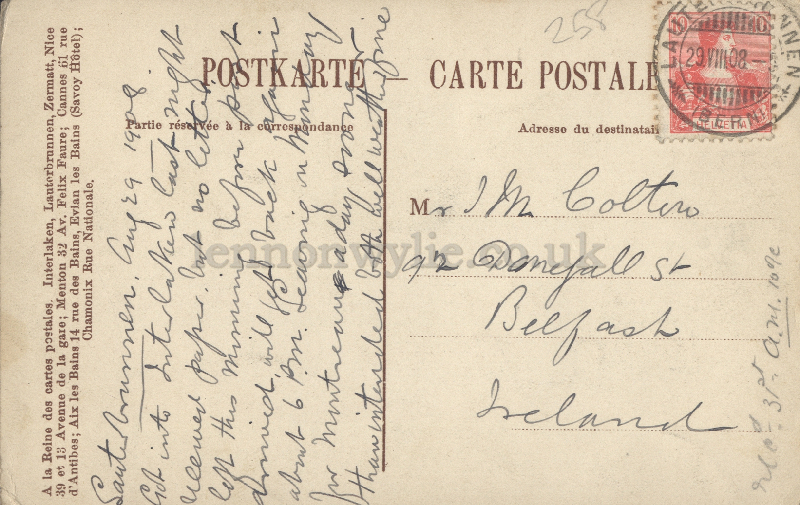 A la Reine des cartes postales. Interlaken, Lauterbrunnen, Zermatt, Nice
39 et 13 Avenue de la gare; Menton 32 Av. Felix Faure; Cannes 61 rue
d'Antibes; Aix les Bains 14 rue des Bains, Evian les Bains (Savoy Hôtel);
Chamonix Rue Nationale.
POSTKARTE — CARTE POSTALE
Partie réservée à la correspondance
Adresse du destinatai
258
10 10
HELVETIA
LAUTERBRUNNEN
29.VIII.08
(BERN)
Lauterbrunnen. Aug 29 1908.
Got into Interlaken last night
received paper. but no letter
left this morning before post
arrived, will get back again
about 6 P.M. Leaving on Monday
for Montreaux a day sooner
than intended both well weather fine
Mr J M Colton
92 Donegall St
Belfast
Ireland
Rec'd 31st A.M.
lennonwylie.co.uk